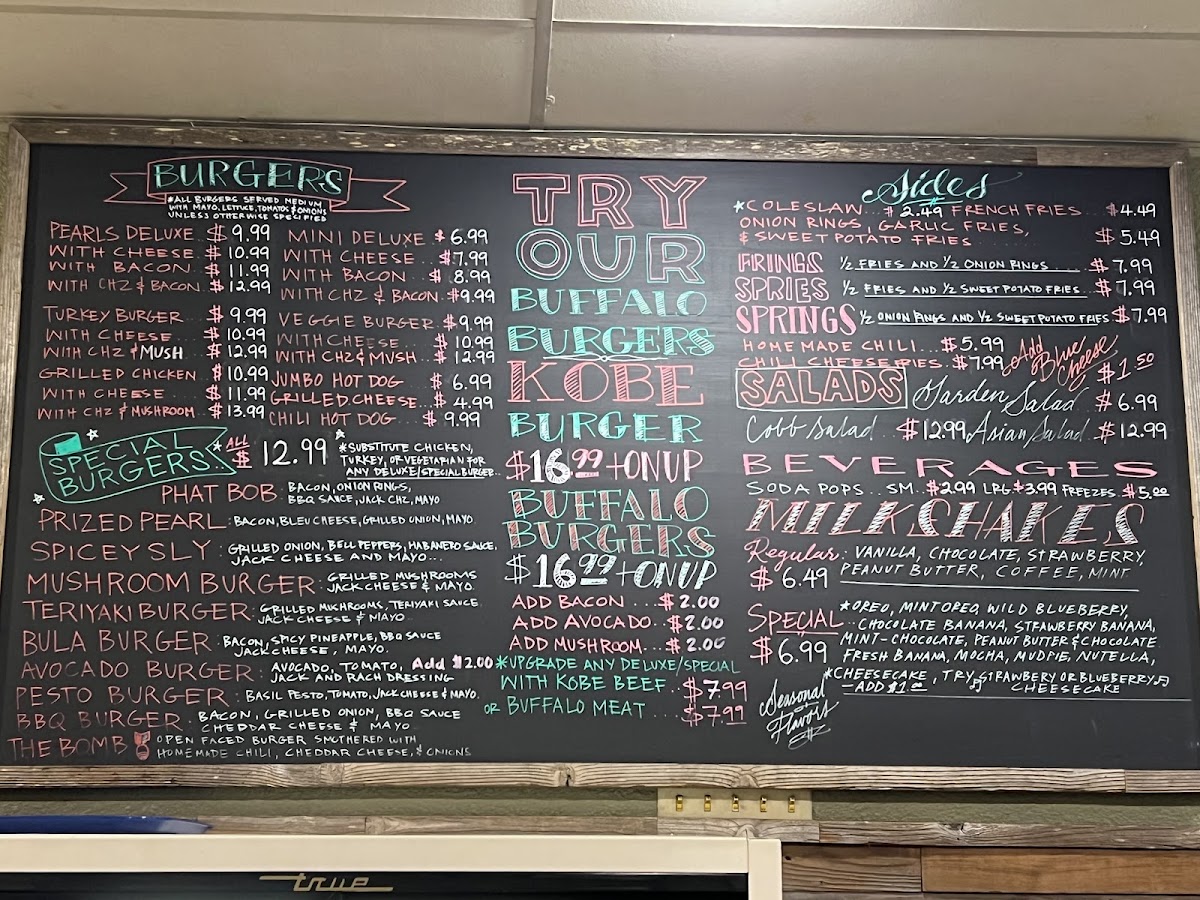 BURGERS
*ALL BURGERS SERVED MEDIUM
WITH MAYO, LETTUCE, TOMATOS & ONIONS
UNLESS OTHERWISE SPECIFIED
PEARLS DELUXE . $ 9.99
WITH CHEESE . $ 10.99
WITH BACON . $ 11.99
WITH CHZ & BACON . $ 12.99
MINI DELUXE $ 6.99
WITH CHEESE ... $7.99
WITH BACON .. $ 8.99
WITH CHZ & BACON . $9.99
TURKEY BURGER .. $ 9.99
WITH CHEESE ... $ 10.99
WITH CHZ & MUSH .. $ 12.99
GRILLED CHICKEN . $ 10.99
WITH CHEESE ... $ 11.99
WITH CHZ & MUSHROOM .. $ 13.99
VEGGIE BURGER . $ 9.99
WITH CHEESE ... $ 10.99
WITH CHZ & MUSH .. $ 12.99
JUMBO HOT DOG .. $ 6.99
GRILLED CHEESE .. $ 4.99
CHILI HOT DOG ... $ 9.99
SPECIAL BURGERS..
*ALL $ 12.99
*SUBSTITUTE CHICKEN,
TURKEY, OR VEGETARIAN FOR
ANY DELUXE/SPECIAL BURGER..
PHAT BOB : BACON, ONION RINGS,
BBQ SAUCE, JACK CHZ, MAYO
PRIZED PEARL : BACON, BLEU CHEESE, GRILLED ONION, MAYO
SPICEY SLY : GRILLED ONION, BELL PEPPERS, HABANERO SAUCE,
JACK CHEESE AND MAYO...
MUSHROOM BURGER : GRILLED MUSHROOMS
JACK CHEESE & MAYO.
TERIYAKI BURGER : GRILLED MUSHROOMS, TERIYAKI SAUCE
JACK CHEESE & MAYO
BULA BURGER : BACON, SPICY PINEAPPLE, BBQ SAUCE
JACK CHEESE, MAYO.
AVOCADO BURGER : AVOCADO, TOMATO, Add $2.00
JACK AND RACH DRESSING
PESTO BURGER : BASIL PESTO, TOMATO, JACK CHEESE & MAYO.
BBQ BURGER : BACON, GRILLED ONION, BBQ SAUCE
CHEDDAR CHEESE & MAYO
THE BOMB OPEN FACED BURGER SMOTHERED WITH
HOMEMADE CHILI, CHEDDAR CHEESE, & ONIONS
TRY
OUR
BUFFALO
BURGERS
KOBE
BURGER
$16.99 + ON UP
BUFFALO
BURGERS
$16.99 + ON UP
ADD BACON ... $ 2.00
ADD AVOCADO .. $ 2.00
ADD MUSHROOM .. $ 2.00
*UPGRADE ANY DELUXE/SPECIAL
WITH KOBE BEEF .. $7.99
OR BUFFALO MEAT .... $7.99
Sides
*COLESLAW... $ 2.49 FRENCH FRIES ... $4.49
ONION RINGS, GARLIC FRIES,
& SWEET POTATO FRIES ... $ 5.49
FRINGS 1/2 FRIES AND 1/2 ONION RINGS ... $ 7.99
SPRIES 1/2 FRIES AND 1/2 SWEET POTATO FRIES .. $ 7.99
SPRINGS 1/2 ONION RINGS AND 1/2 SWEET POTATO FRIES $7.99
HOME MADE CHILI ... $ 5.99
CHILI CHEESE FRIES .. $7.99
Add Blue Cheese $1.50
SALADS
Garden Salad .. $ 6.99
Cobb Salad .. $12.99 Asian Salad .. $ 12.99
BEVERAGES
SODA POPS ... SM.. $2.99 LRG. $3.99 FREEZES. $5.00
MILKSHAKES
Regular : VANILLA, CHOCOLATE, STRAWBERRY,
$ 6.49 PEANUT BUTTER, COFFEE, MINT
Special *OREO, MINT OREO, WILD BLUEBERRY,
CHOCOLATE BANANA, STRAWBERRY BANANA,
$ 6.99 MINT-CHOCOLATE, PEANUT BUTTER & CHOCOLATE
FRESH BANANA, MOCHA, MUDPIE, NUTELLA,
*CHEESECAKE, TRY STRAWBERRY OR BLUEBERRY
-ADD $1.00 CHEESECAKE
Seasonal Flavors
true